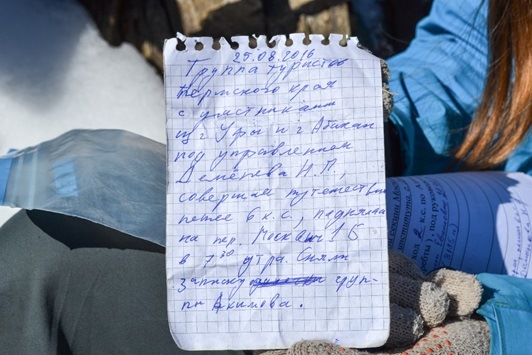 25.08.2016
Группа туристов
Пермского края
с участниками
из г Уфы и г Абакан
под управлением
Дементева Н.П.,
совершая путешествие
пешее 6 к.с., поднялась
на пер. 1Б
в 7 30 утра. Сняли
записку груп-
пы Акимова.